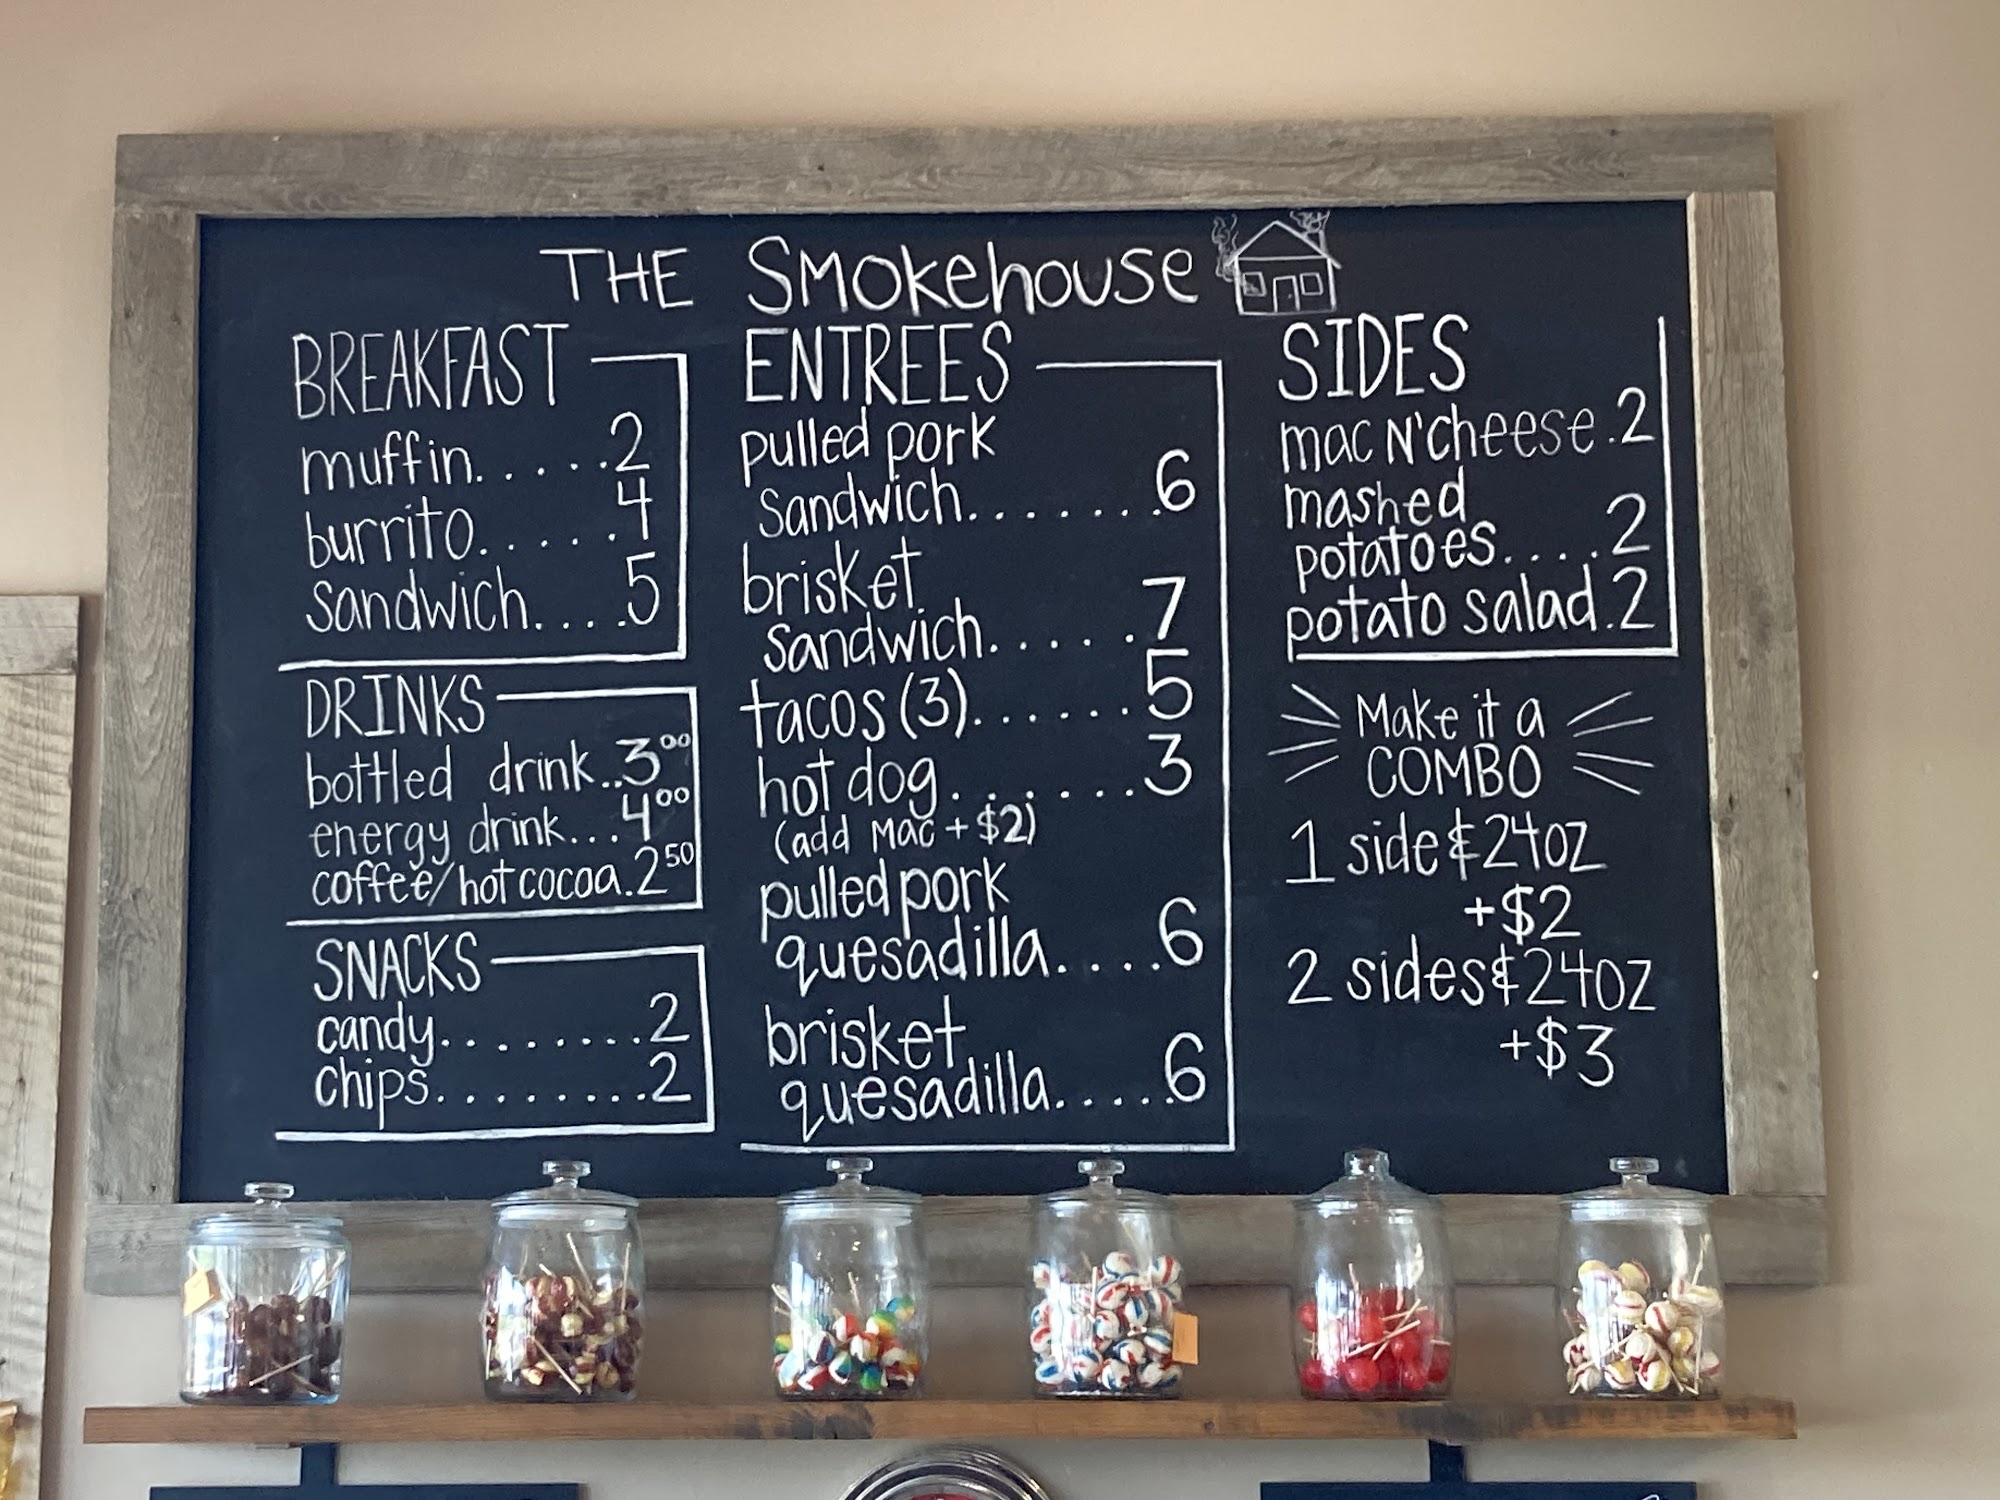 THE SMOKEHOUSE
BREAKFAST
muffin.....2
burrito.....4
sandwich....5
DRINKS
bottled drink..3⁰⁰
energy drink...4⁰⁰
coffee/hot cocoa.2⁵⁰
SNACKS
candy........2
chips.........2
ENTREES
pulled pork
sandwich.......6
brisket
sandwich.....7
tacos (3)......5
hot dog.......3
(add Mac + $2)
pulled pork
quesadilla....6
brisket
quesadilla.....6
SIDES
mac N'cheese.2
mashed
potatoes....2
potato salad.2
Make it a
COMBO
1 side & 24oz
+$2
2 sides & 24oz
+$3